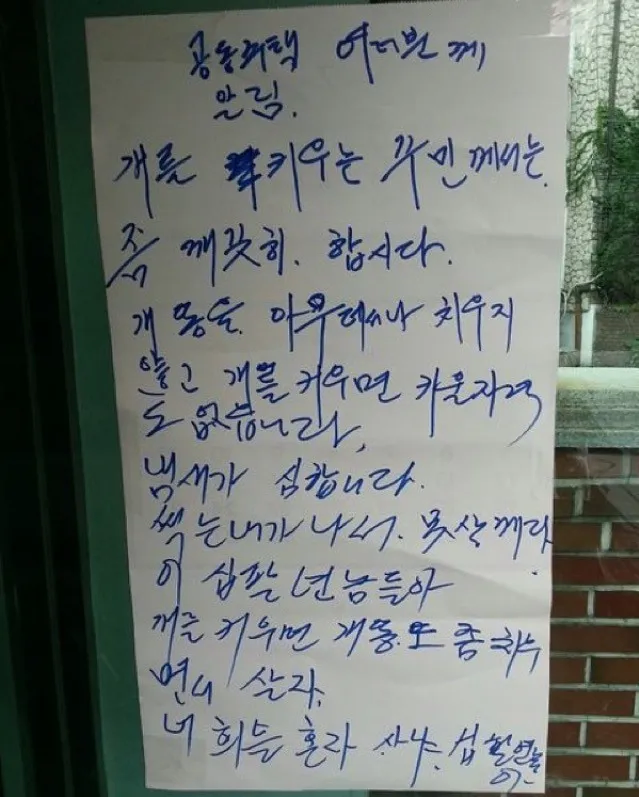 공동주택 여러분께
알림.
개를 키우는 주민께서는.
좀 깨끗히. 합시다.
개 똥을. 아무데나 치우지
않고 개를 키우면 키울자격
도 없습니다,
냄새가 심합니다.
썩는내가 나서. 못살께다
이 십팔년놈들아
개를 키우면 개똥.도 좀 치우
면서 살자.
너희들 혼자 사냐. 십팔년놈
아-